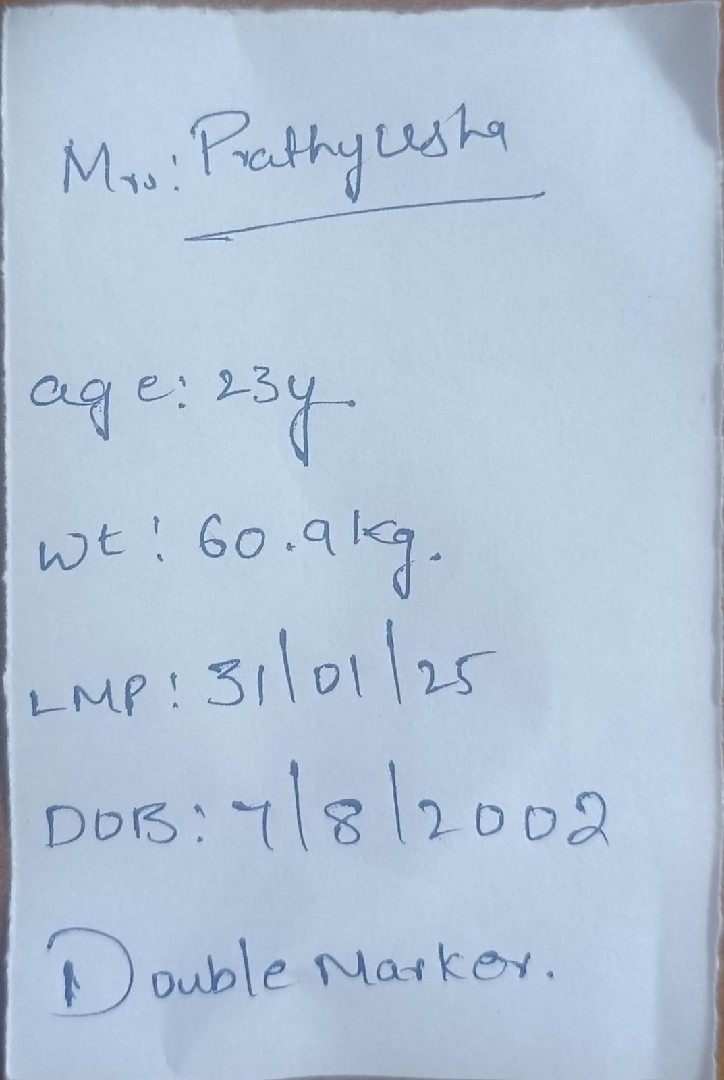 Mrs: Prathyusha
age: 23y.
wt: 60.9kg.
LMP: 31/01/25
DOB: 7/8/2002
Double Marker.